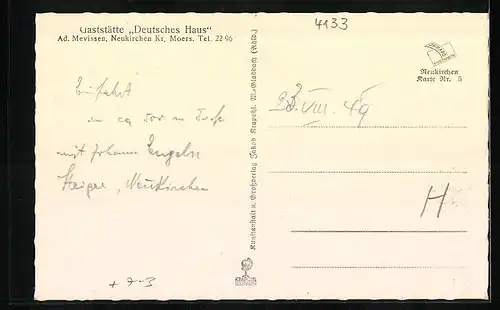 Gaststätte „Deutsches Haus"
Ad. Mevissen, Neukirchen Kr. Moers. Tel. 22 96
4133
Neukirchen
Karte Nr. 5
Einfahrt
in ca 500 m Tiefe
mit Johann Engeln
Steiger, Neukirchen
23. VIII. 49
H
Kunstanstalt u. Großverlag Jakob Krapohl, M.-Gladbach (Rhld.)
+ 7-3